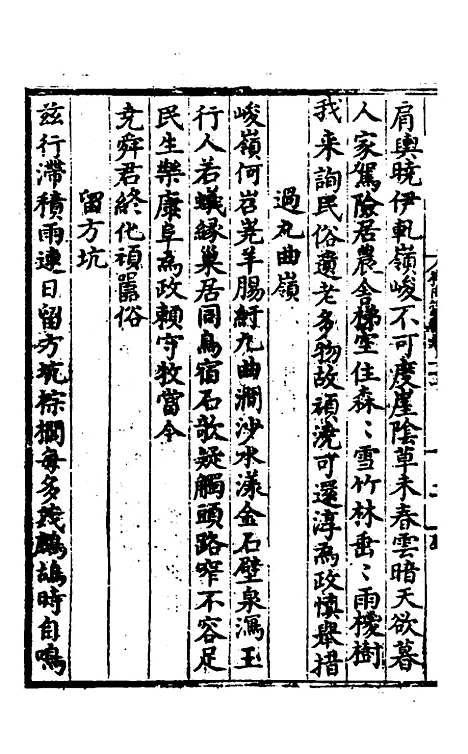 肩輿曉伊軋嶺峻不可度崖陰草未春雲暗天欲暮
人家駕險居農舍梯空住森〻雪竹林垂〻雨櫻樹
我來詢民俗遺老多物故頑澆可還淳為政慎舉措
過九曲嶺
峻嶺何岧嶤羊腸紆九曲澗沙水漾金石壁泉瀉玉
行人若蟻緣巢居同鳥宿石欹疑觸頭路窄不容足
民生樂康阜為政賴守牧當今
堯舜君終化頑嚚俗
留方坑
茲行滯積雨連日留方坑棕櫚每多茂鷓鴣時自鳴